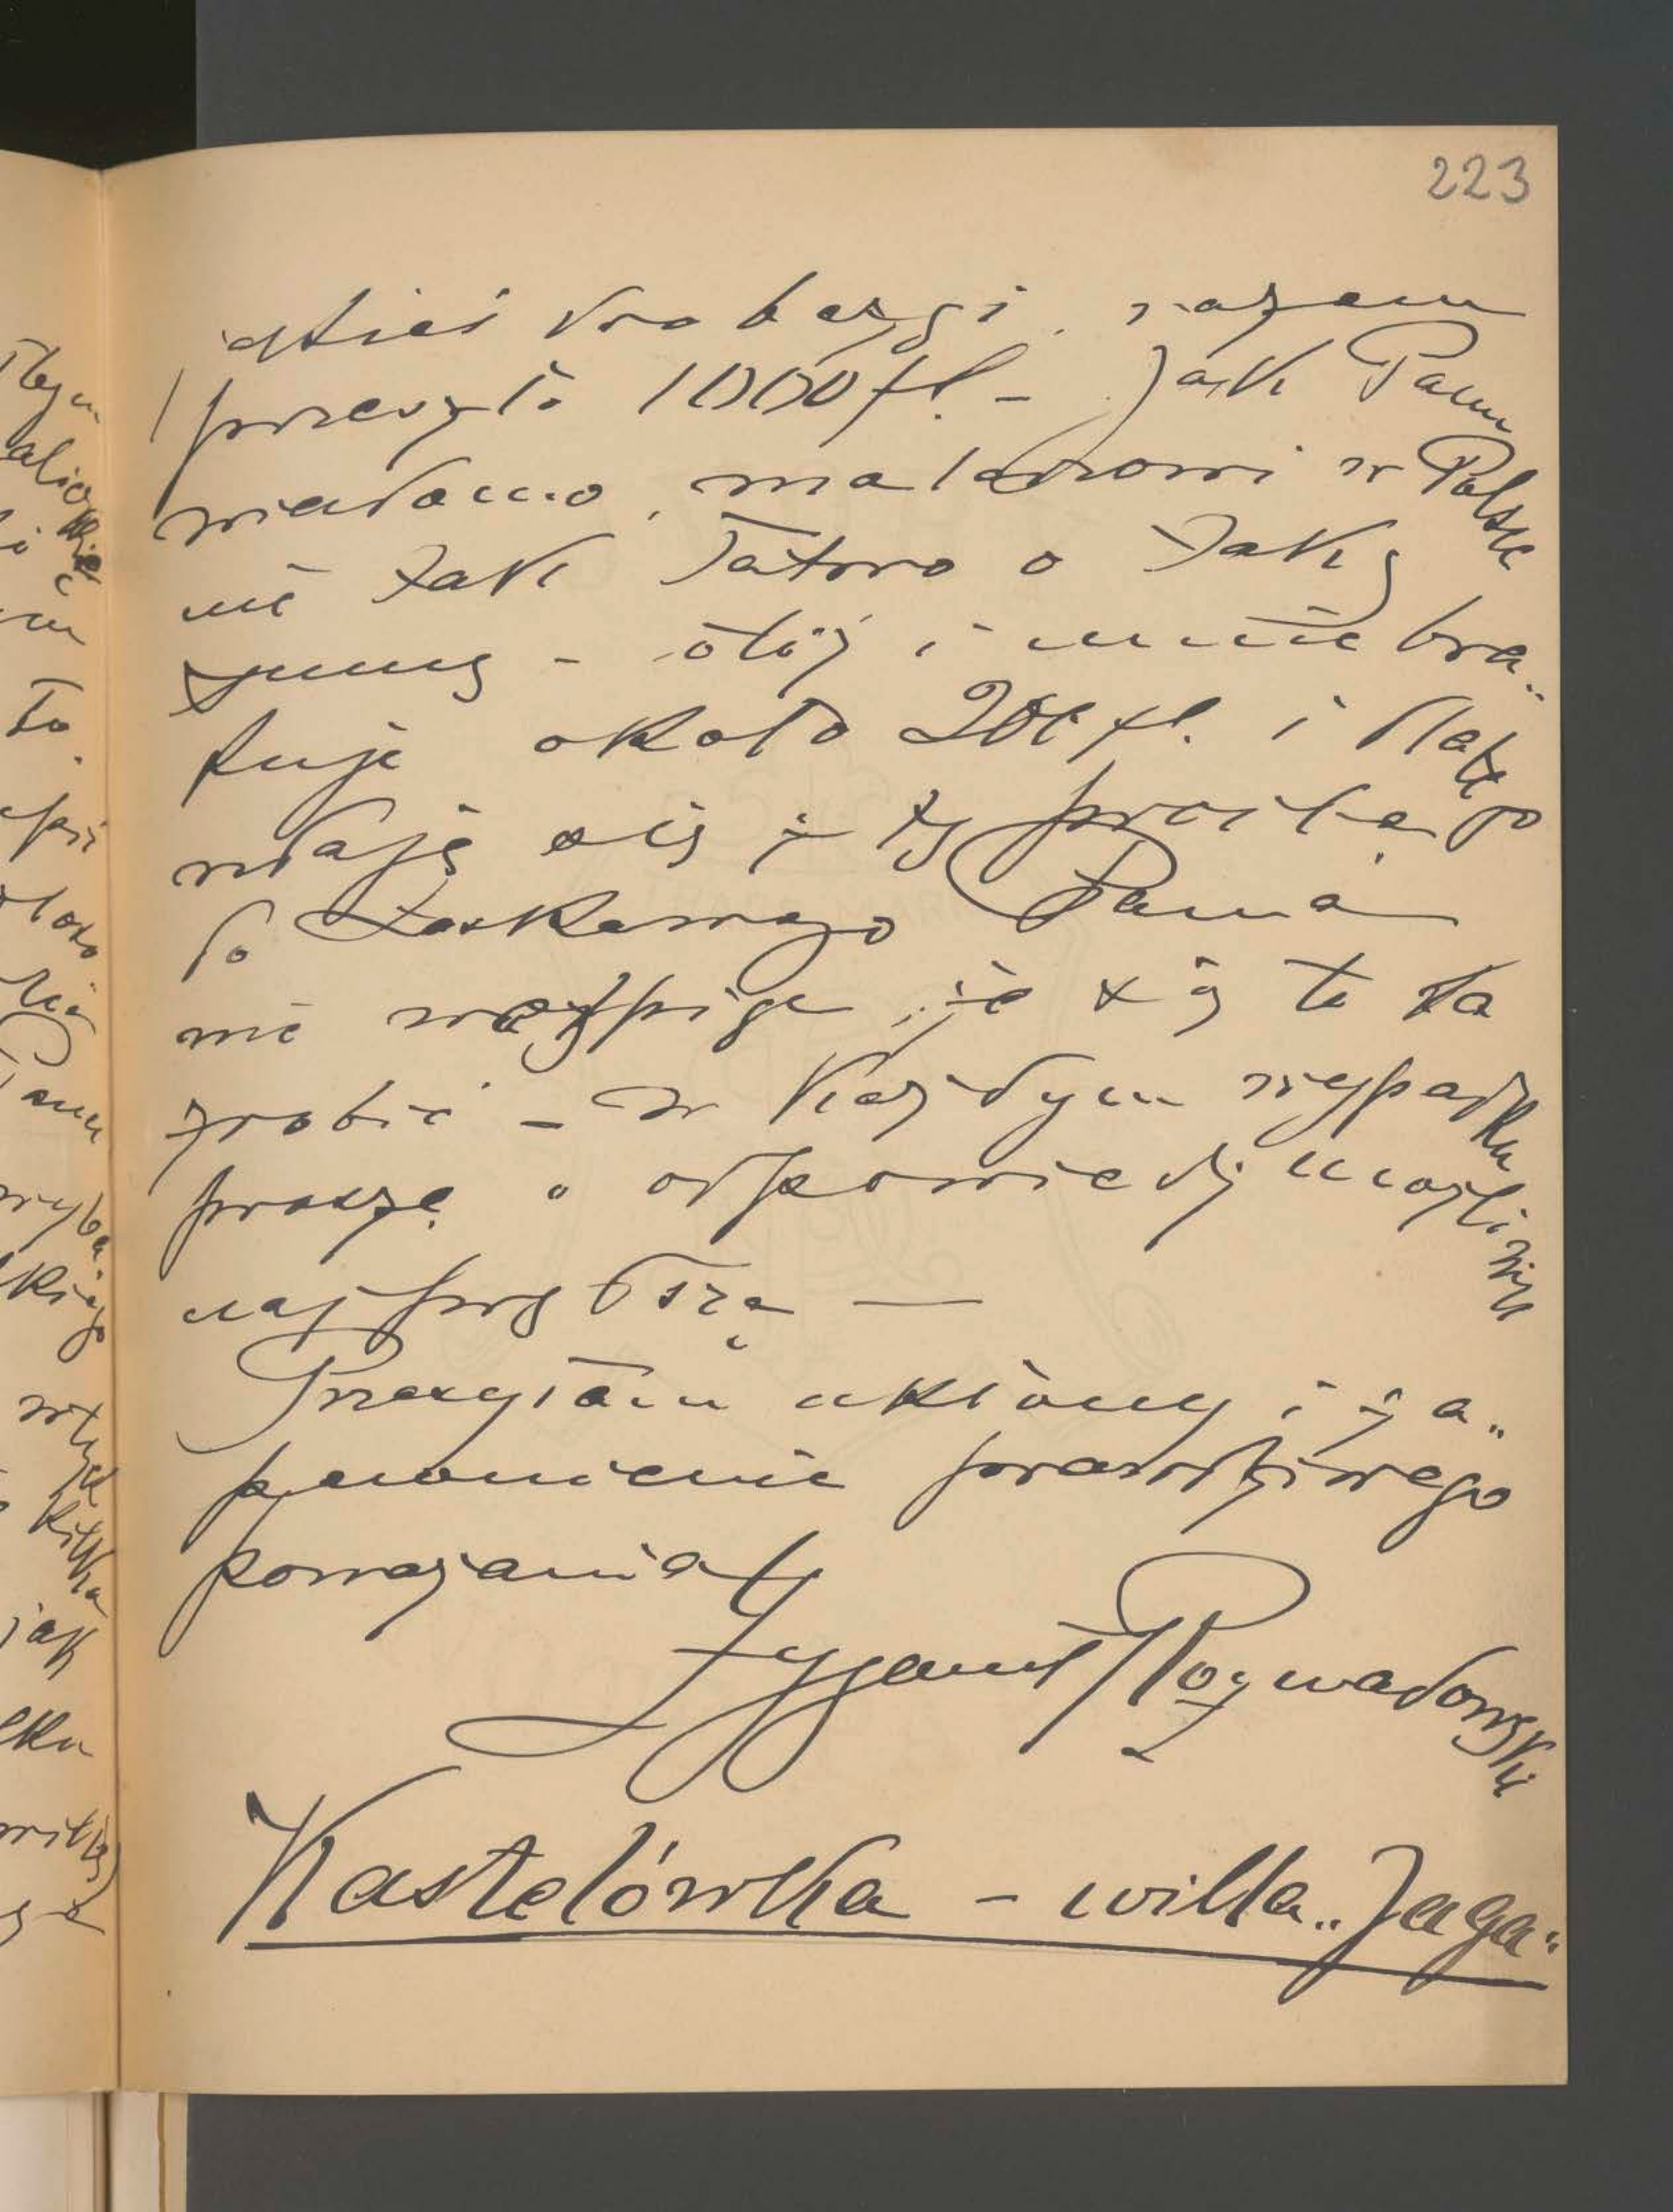 223
jakieś drobiazgi razem
przeszło 1000 fl. – Jak Panu
wiadomo, malarzowi w Polsce
nie tak łatwo o taką
sumę – otóż i mnie bra„
kuje około 200 fl. i dlatego
udaję się z tą prośbą
do Łaskawego Pana
nie wątpię, że się to da
zrobić – w każdym wypadku
proszę o odpowiedź możliwie
najprędszą —
Przesyłam ukłony i za„
pewnienie prawdziwego
poważania
Zygmunt Rozwadowski
Kastelówka – willa „Jaga"